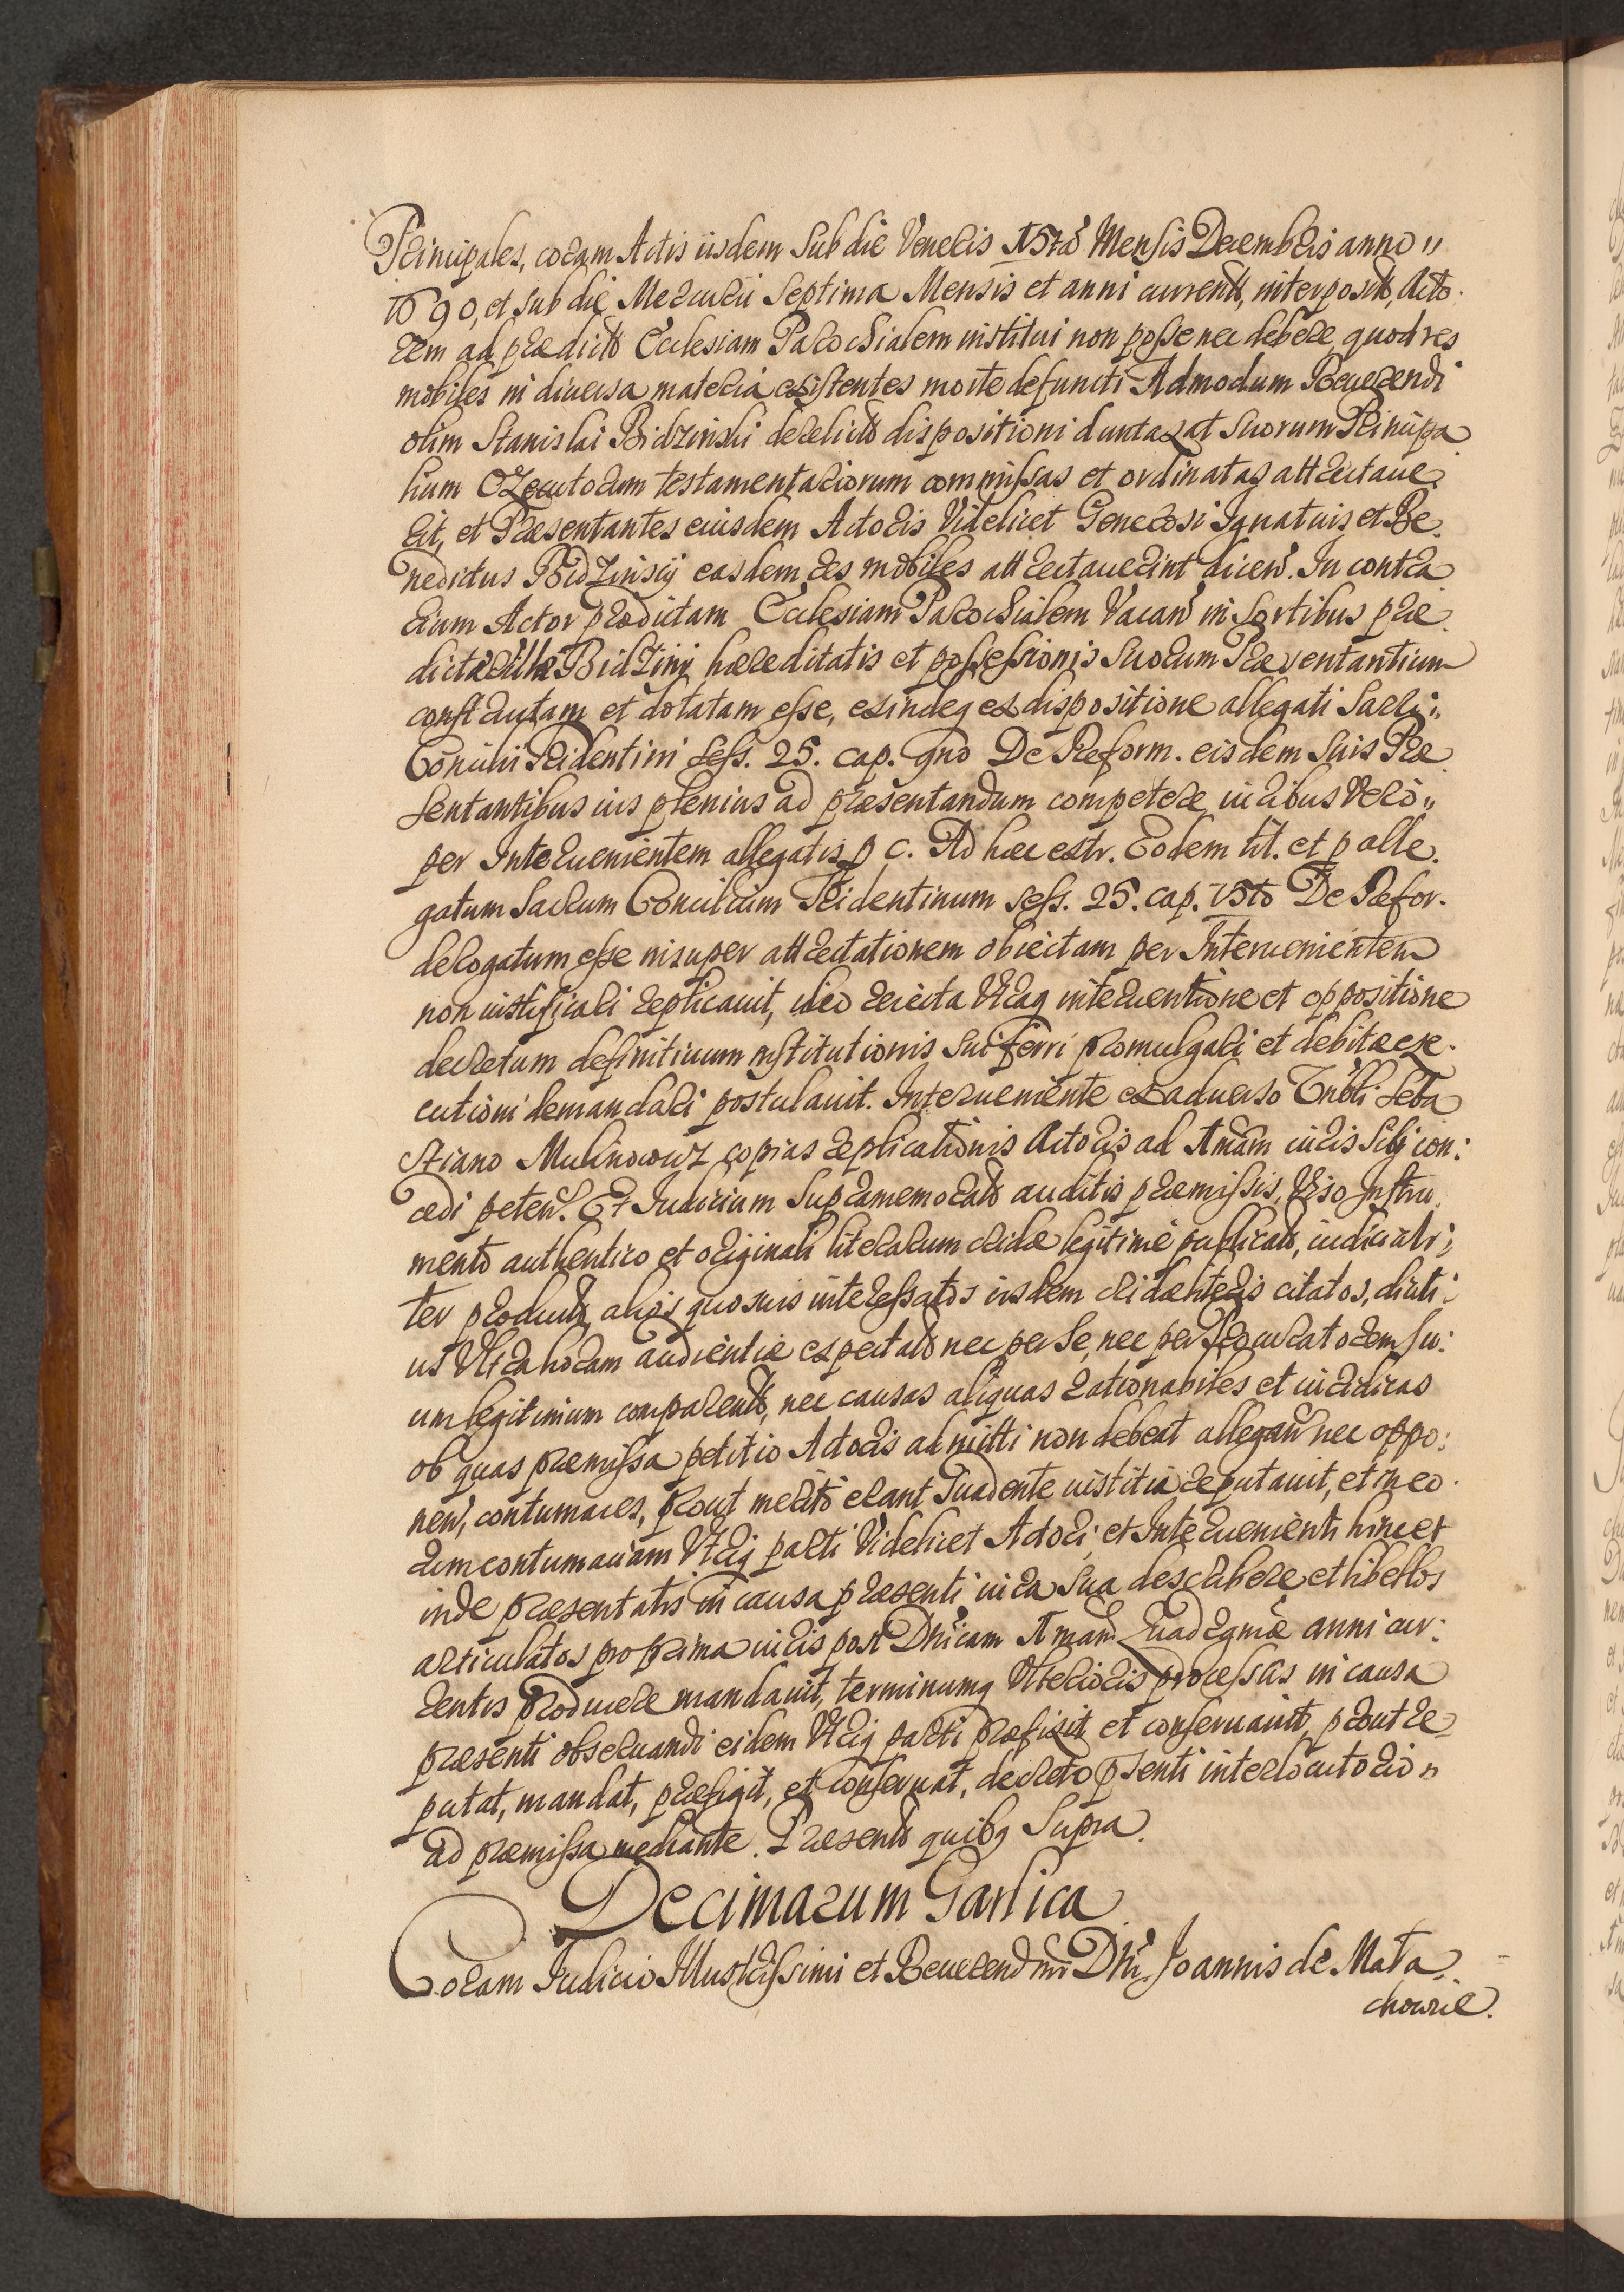 Principales, coram Actis iisdem Sub die Veneris 15tâ Mensis Decembris anno
1690, et sub die Mercurii Septima Mensis et anni currentis, interpositis, Acto.
rem ad praedictã Ecclesiam Parochialem institui non posse nec debere, quod res
mobiles in diversa materia existentes morte defuncti Admodum Reverendi
olim Stanislai Bidzinski derelictas dispositioni duntaxat Suorum Principa
lium Executorum testamentariorum commissas et ordinatas attrectave
rit, et Praesentantes eiusdem Actoris Videlicet Generosi Ignatius et Be.
nedictus Bidzinscÿ easdem res mobiles attrectaverint dicen. In contra
rium Actor praedictam Ecclesiam Parochialem Vacan in Sortibus prae
dictae Villae Bidziny haereditatis et possessionis Suorum Praesentantium
constructam et dotatam esse, exindeq ex dispositione allegati Sacri
Concilii Tridentini Sess. 25. cap. 9no De Reform. eisdem Suis Prae
sentantibus ius plenius ad praesentandum competere, iuribus Vero
per Intervenientem allegatis p c. Ad haec extr. Eodem tit. et p alle.
gatum Sacrum Concilium Tridentinum sess. 25. cap. 15to De Refor.
derogatum esse insuper attrectationem obiectam per Intervenientem
non iustificari replicavit, ideo reiecta Utraq interventione et oppositione
decretum definitivum institutionis Sui ferri promulgari et debitae exe.
cutioni demandari postulavit. Interveniente ex adverso Tribli Seba
stiano Mulinowicz copias replicationis Actoris ad Imam iuris Sibj con:
cedi peten. Et Iudicium Supramemoratũ auditis praemissis, Viso Instru
mento authentico et originali literarum cridae legitime publicatõ, iudiciali:
ter producto, alios quosvis interessatos iisdem cridae literis citatos, diuti:
us Ultra horam audientiae expectatos nec per Se, nec per Procuratorem Su:
um legitimum comparentes, nec causas aliquas rationabiles et iuridicas
ob quas praemissa petitio Actoris admitti non debeat allegan nec oppo:
nen, contumaces, prout merito erant Suadente iustitia reputavit, et in eo.
rum contumaciam Utriq parti Videlicet Actori et Intervenienti hinc et
inde praesentatis in causa praesenti iura Sua describere et libellos
articulatos pro prima iuris post Dnicam Imam Quadragmae anni cur:
rentis producere mandavit, terminumq Ulterioris processus in causa
praesenti observandi eidem Utriq parti praefixit et conservavit, prout re
putat, mandat, praefigit, et conservat, decreto psenti interlocutorio
ad praemissa mediante. Praesentibs quibq Supra.
Decimarum Garlica
Coram Iudicio Illustrissimi et Reverendmi Dni Joannis de Mała
chowice.